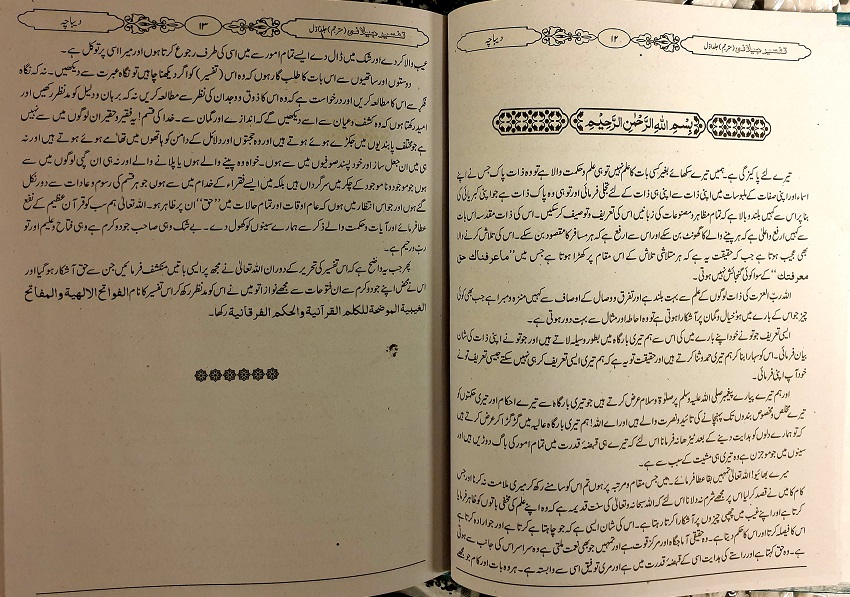 تفسیر جیلانی (مترجم) جلد اوّل
۱۲
دیباچہ
بِسْمِ اللهِ الرَّحْمٰنِ الرَّحِیْمِ
تیرے لئے پاکیزگی ہے۔ ہمیں تیرے سکھائے بغیر کسی بات کا علم نہیں تو ہی علم و حکمت والا ہے تو وہ ذات پاک جس نے اپنے
اسماء اور اپنی صفات کے ملبوسات میں اپنی ذات سے اپنی ہی ذات کے لئے تجلی فرمائی اور تو ہی وہ پاک ذات ہے جو اپنی کبریائی کی
بنا پر اس سے کہیں بلند و بالا ہے کہ تمام مظاہر و مصنوعات کی زبانیں اس کی تعریف و توصیف کر سکیں۔ اس کی ذات مقدسہ اس بات
سے کہیں ارفع و اعلیٰ ہے کہ ہر پینے والے کا گھونٹ بن سکے اور اس سے ارفع ہے کہ ہر مسافر کا مقصود بن سکے۔ اس کی تلاش کرنے والا
بھی عجیب ہوتا ہے جب کہ حقیقت یہ ہے کہ ہر متلاشی تلاش کے اس مقام پر کھڑا ہوتا ہے جس میں ”ما عرفناك حق
معرفتك“ کے سوا کوئی گنجائش نہیں ہوتی۔
اللہ ربّ العزت کی ذات لوگوں کے علم سے بہت بلند ہے اور تفرق و وصال کے اوصاف سے کہیں منزہ و مبرا ہے جب بھی کوئی
چیز جو اس کے بارے میں وہ خیال و گمان پر آشکارا ہوتی ہے تو وہ احاطہ اور مثال سے بہت دور ہوتی ہے۔
ایسی تعریف جو تو نے خود اپنے بارے میں کی اس سے ہم تیری بارگاہ میں بطور وسیلہ لاتے ہیں اور جو تو نے اپنی ذات کی شان
بیان فرمائی۔ اس کو سہارا بنا کر ہم تیری حمد و ثنا کرتے ہیں اور حقیقت تو یہ ہے کہ ہم تیری ایسی تعریف کر ہی نہیں سکتے جیسی تعریف تو نے
خود آپ اپنی فرمائی۔
اور ہم تیرے پیارے پیغمبر صلی اللہ علیہ وسلم پر صلوٰۃ و سلام عرض کرتے ہیں جو تیری بارگاہ سے تیرے احکام اور تیری حکمتوں کو
تیرے مخلص و مخصوص بندوں تک پہنچانے کی تائید و نصرت والے ہیں اور اے اللہ! ہم تیری بارگاہ عالیہ میں گڑگڑا کر عرض کرتے ہیں
کہ تو ہمارے دلوں کو ہدایت دینے کے بعد ٹیڑھا نہ فرمانا اس لئے کہ تیرے ہی قبضۂ قدرت میں تمام امور کی باگ دوڑیں ہیں اور
سینوں میں جو موجزن ہے وہ تیری ہی مشیت کے سبب سے ہے۔
میرے بھائیو! اللہ تعالیٰ تمہیں بقا عطا فرمائے۔ میں جس مقام و مرتبہ پر ہوں تم اس کو سامنے رکھ کر میری ملامت نہ کرنا اور جس
کام کا میں نے قصد کر لیا اس پر مجھے شرم نہ دلانا اس لئے کہ اللہ سبحانہ و تعالیٰ کی سنت قدیمہ ہے کہ وہ اپنے علم کی مخفی باتوں کو ظاہر فرمایا
کرتا ہے اور اپنے غیب میں چھپی چیزوں پر آشکارا کرتا رہتا ہے۔ اس کی شان ایسی ہے کہ جو چاہتا ہے کرتا ہے اور جو ارادہ کرتا ہے
اس کا فیصلہ کرتا اور اس کا حکم دیتا ہے۔ وہ حقیقی آماجگاہ اور مرکز قوت ہے اور تمہیں جو بھی نعمت ملتی ہے وہ سراسر اس کی جانب سے ہوتی
ہے۔ وہ حق کہتا ہے اور راستے کی ہدایت اسی کے قبضۂ قدرت میں ہے اور مری توفیق اسی سے وابستہ ہے۔ ہر وہ بات اور کام جو مجھے
تفسیر جیلانی (مترجم) جلد اوّل
۱۳
دیباچہ
عیب والا کر دے اور شک میں ڈال دے ایسے تمام امور سے میں اسی کی طرف رجوع کرتا ہوں اور میرا اسی پر توکل ہے۔
دوستوں اور ساتھیوں سے اس بات کا طلب گار ہوں کہ وہ اس (تفسیر) کو اگر دیکھنا چاہیں تو نگاہ عبرت سے دیکھیں۔ نہ کہ نگاہ
فکر سے اس کا مطالعہ کریں اور درخواست ہے کہ وہ اس کا ذوق و وجدان کی نظر سے مطالعہ کریں نہ کہ برہان و دلیل کو مد نظر رکھیں اور
امید رکھتا ہوں کہ وہ کشف و عیان سے اسے دیکھیں گے کہ اندازے اور گمان سے۔ خدا کی قسم! یہ فقیر حقیر ان لوگوں میں سے نہیں
جو مختلف پابندیوں میں جکڑے ہوئے ہوتے ہیں اور وہ حجتوں اور دلائل کے دامن کو ہاتھوں میں تھامے ہوئے ہوتے ہیں اور نہ
ہی میں ان جعل ساز اور خود پسند صوفیوں میں سے ہوں۔ خواہ وہ پینے والے ہوں یا پلانے والے اور نہ ہی ان گیی لوگوں میں سے
ہوں جو موجود و نا موجود کے چکر میں سرگرداں ہیں بلکہ میں ایسے فقراء کے خدام میں سے ہوں جو ہر قسم کی رسوم و عادات سے دور نکل
گئے ہوں اور جو اس انتظار میں ہوں کہ عام اوقات اور تمام حالات میں ”حق“ ان پر ظاہر ہو۔ اللہ تعالیٰ ہم سب کو قرآن عظیم کے نفع
عطا فرمائے اور آیات و حکمت والے ذکر سے ہمارے سینوں کو کھول دے۔ بے شک وہی صاحب جود و کرم ہے وہی فتاح و علیم اور تو
ربّ و رحیم ہے۔
پھر جب یہ واضح ہے کہ اس تفسیر کی تحریر کے دوران اللہ تعالیٰ نے مجھ پر ایسی باتیں منکشف فرمائیں جن سے حق آشکار ہو گیا اور
اس نے محض اپنے جود و کرم سے ان فتوحات سے مجھے نوازا تو میں نے اس کو مد نظر رکھ کر اس تفسیر کا نام الفواتح الالٰهية والمفاتح
الغيبية الموضحة للكلم القرآنية والحكم الفرقانية رکھا۔